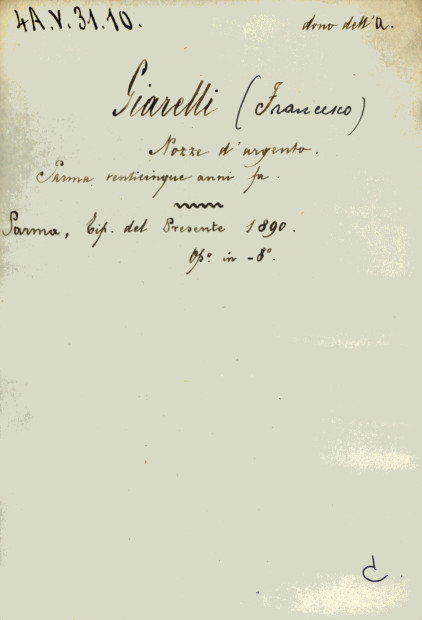 4A.V.31.10.
dono dell'a.
Giarelli (Francesco)
Nozze d'argento.
Parma venticinque anni fa.
Parma, Tip. del Presente 1890.
Op.° in -8°.
C.